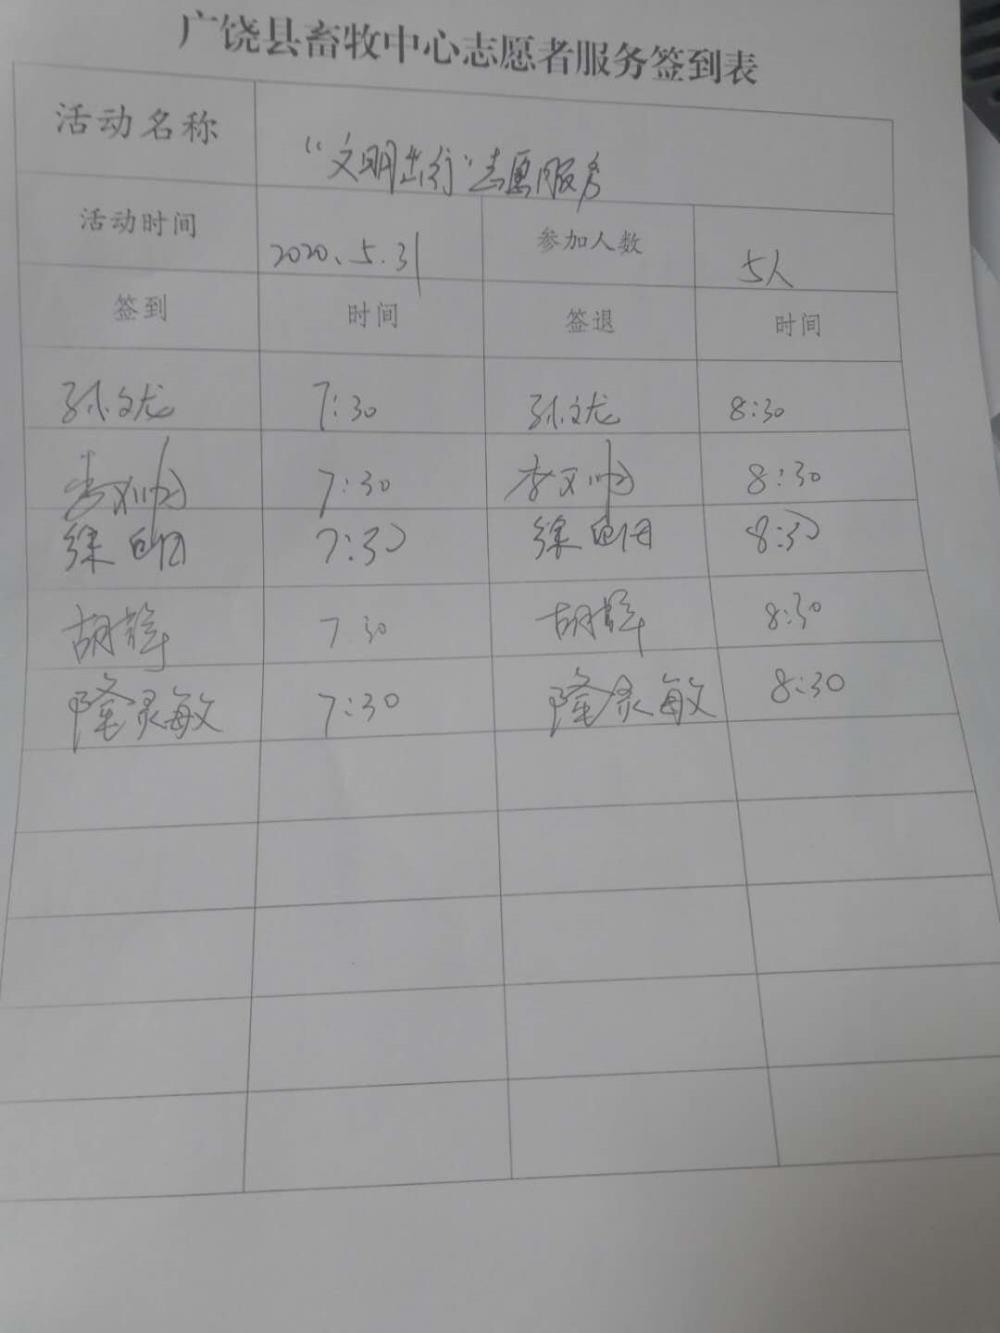 广饶县畜牧中心志愿者服务签到表
活动名称 “文明出行”志愿服务
活动时间 2020.5.31 参加人数 5人
签到 时间 签退 时间
孙文龙 7:30 孙文龙 8:30
李文帅 7:30 李文帅 8:30
徐 7:30 徐 8:30
胡 7 30 胡 8:30
隆灵敏 7:30 隆灵敏 8:30